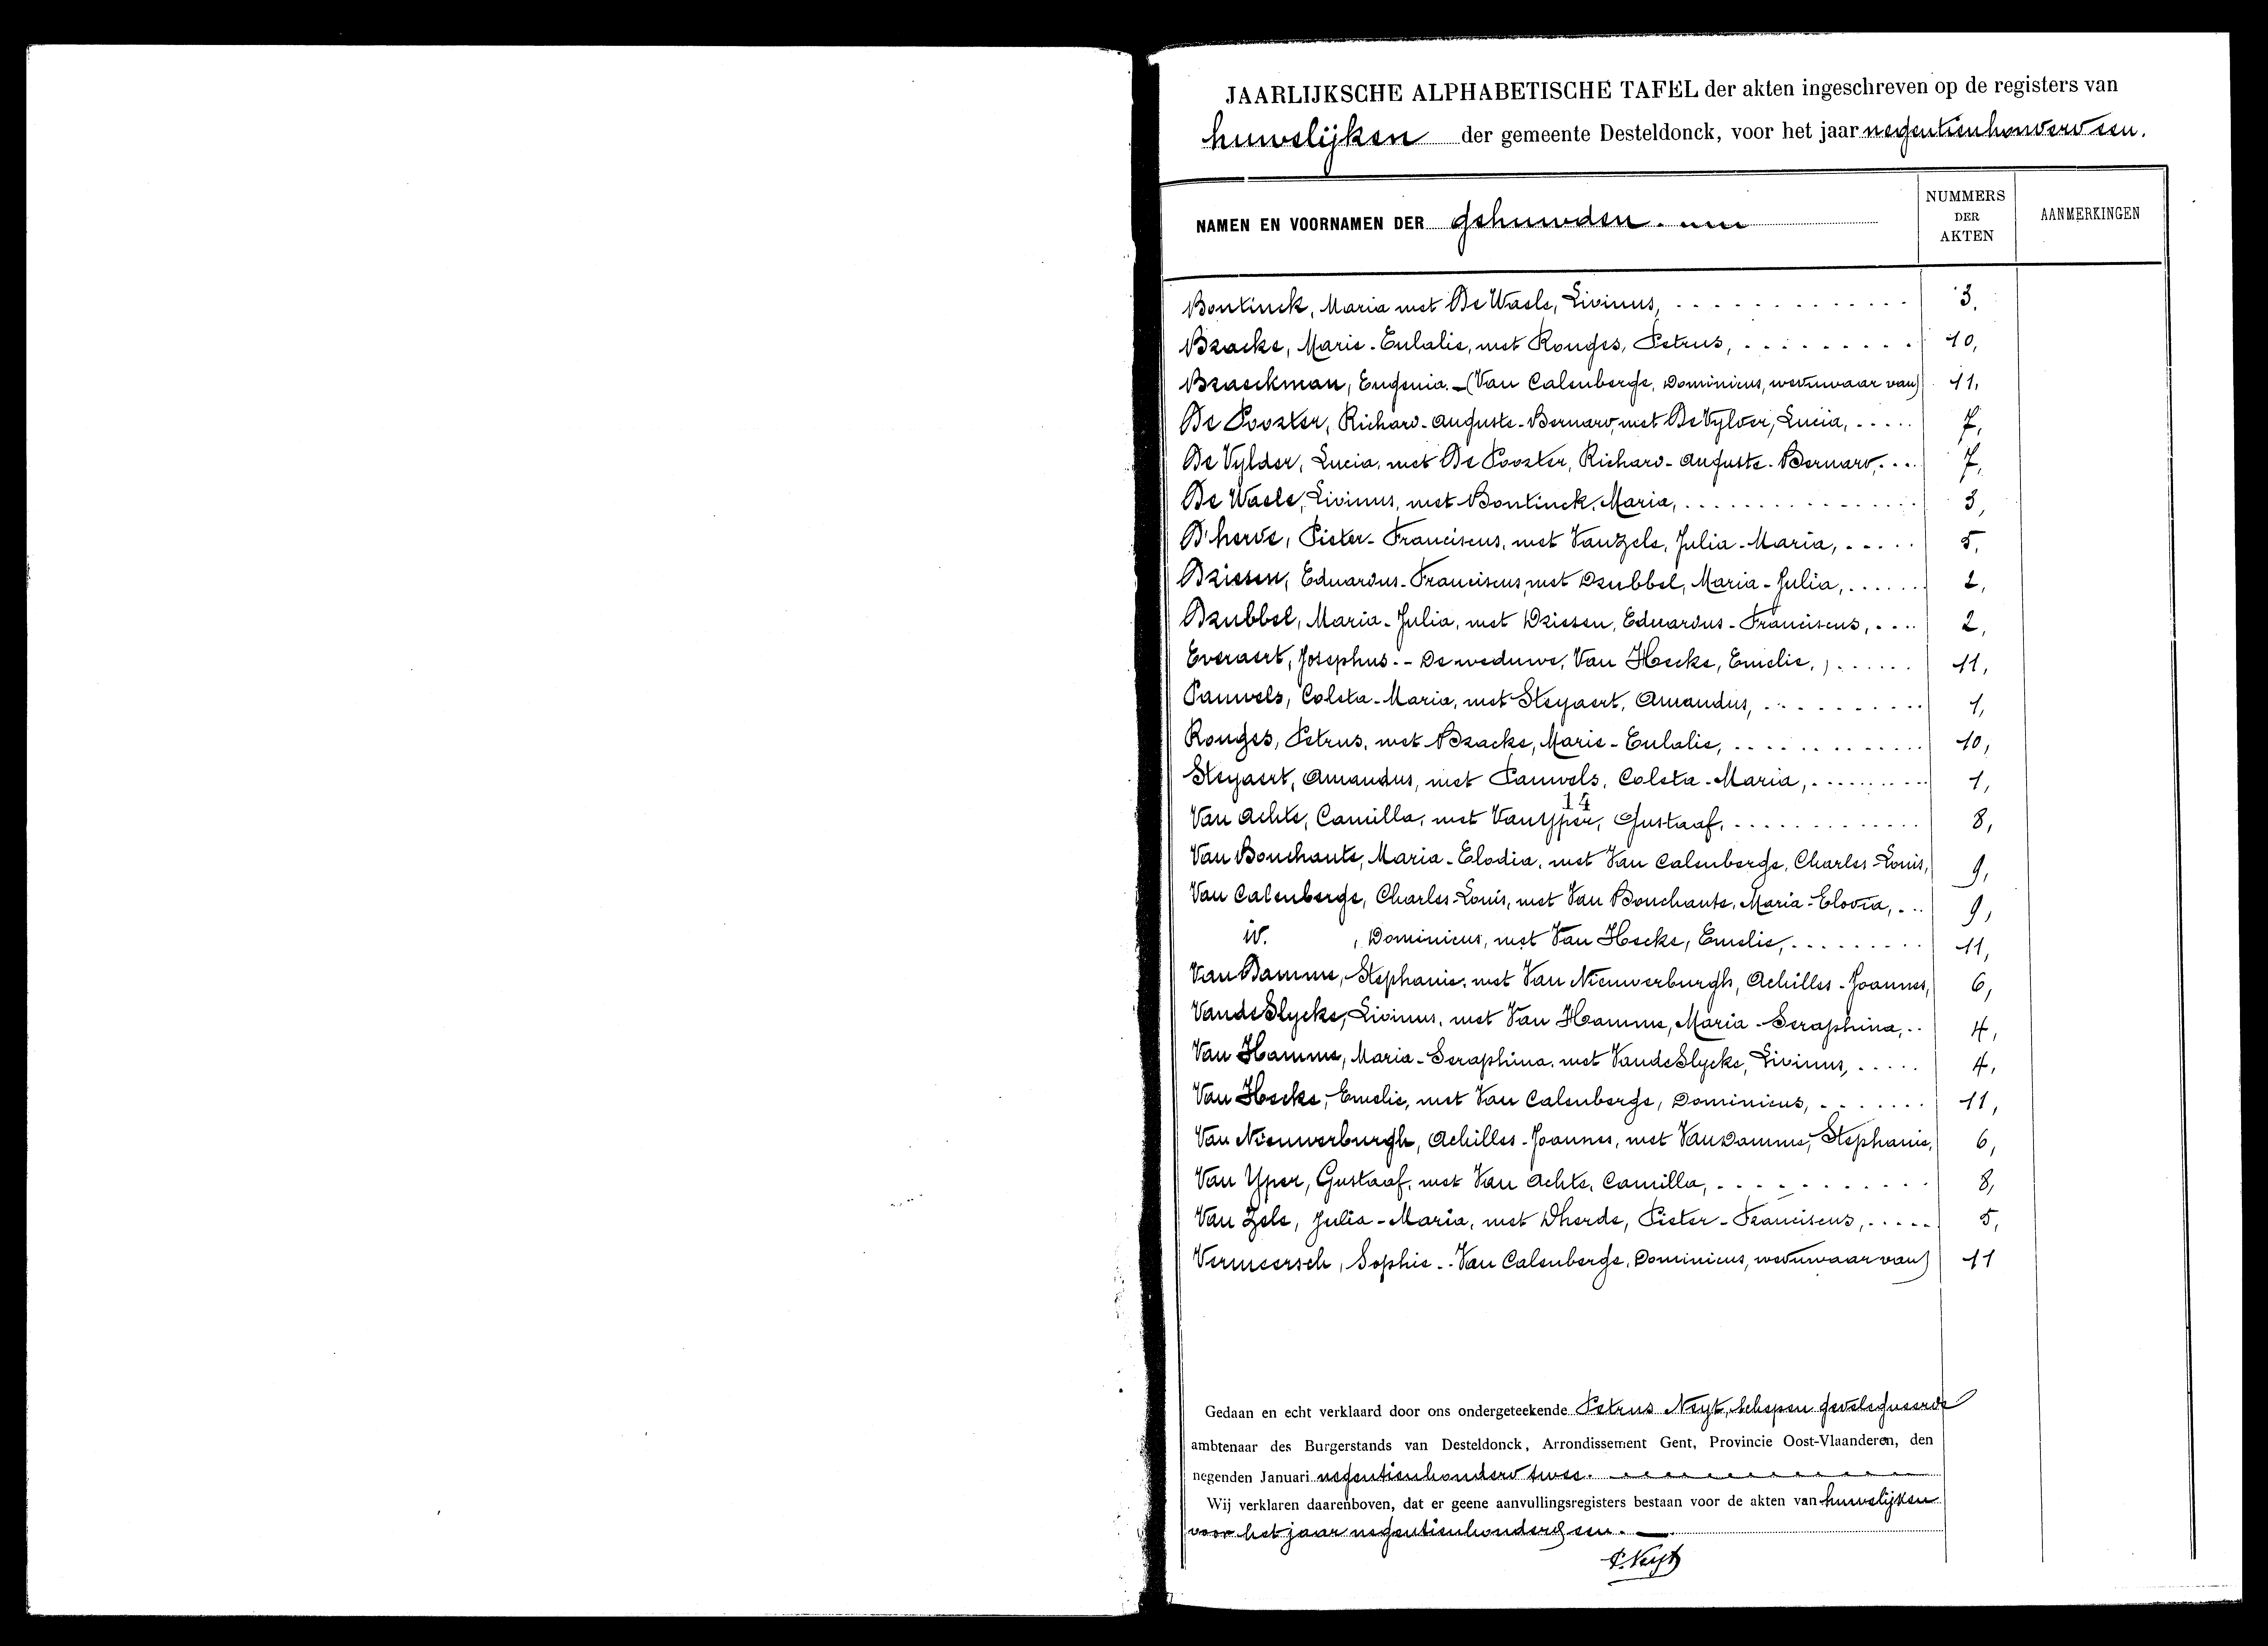 JAARLIJKSCHE ALPHABETISCHE TAFEL der akten ingeschreven op de registers van
huwelijken der gemeente Desteldonck, voor het jaar negentienhonderd een.
NAMEN EN VOORNAMEN DER gehuwden.
NUMMERS DER AKTEN
AANMERKINGEN
Bontinck, Maria met De Waele, Livinus, 3.
Bracke, Marie-Eulalie, met Ronges, Petrus, 10,
Braeckman, Eugenia.-(Van Calenberge, Dominicus, weduwaar van) 11,
De Poorter, Richard-Auguste-Bernard, met De Vylder, Lucia, 7,
De Vylder, Lucia, met De Poorter, Richard-Auguste-Bernard, 7,
De Waele, Livinus, met Bontinck, Maria, 3,
D'herde, Pieter-Franciscus, met Van Zele, Julia-Maria, 5,
Driesen, Eduardus-Franciscus, met Drubbel, Maria-Julia, 2,
Drubbel, Maria-Julia, met Driesen, Eduardus-Franciscus, 2,
Everaert, Josephus.- De weduwe, Van Hecke, Emelie,) 11,
Pauwels, Coleta-Maria, met Steyaert, Amandus, 1,
Ronges, Petrus, met Bracke, Marie-Eulalie, 10,
Steyaert, Amandus, met Pauwels, Coleta-Maria, 1,
14
Van Achte, Camilla, met Van Yper, Gustaaf, 8,
Van Bouchaute, Maria-Elodia, met Van Calenberge, Charles-Louis, 9,
Van Calenberge, Charles-Louis, met Van Bouchaute, Maria-Elodia, 9,
id. , Dominicus, met Van Hecke, Emelie, 11,
Van Damme, Stephanie, met Van Nieuwerburgh, Achilles-Joannes, 6,
Van de Slycke, Livinus, met Van Hamme, Maria-Seraphina, 4,
Van Hamme, Maria-Seraphina, met Van de Slycke, Livinus, 4,
Van Hecke, Emelie, met Van Calenberge, Dominicus, 11,
Van Nieuwerburgh, Achilles-Joannes, met Van Damme, Stephanie, 6,
Van Yper, Gustaaf, met Van Achte, Camilla, 8,
Van Zele, Julia-Maria, met Dherde, Pieter-Franciscus, 5,
Vermeersch, Sophie.-Van Calenberge, Dominicus, weduwaar van) 11
Gedaan en echt verklaard door ons ondergeteekende Petrus Neyt, schepen gedelegueerde
ambtenaar des Burgerstands van Desteldonck, Arrondissement Gent, Provincie Oost-Vlaanderen, den
negenden Januari negentienhonderd twee.
Wij verklaren daarenboven, dat er geene aanvullingsregisters bestaan voor de akten van huwelijken
voor het jaar negentienhonderd een.
P. Neyt